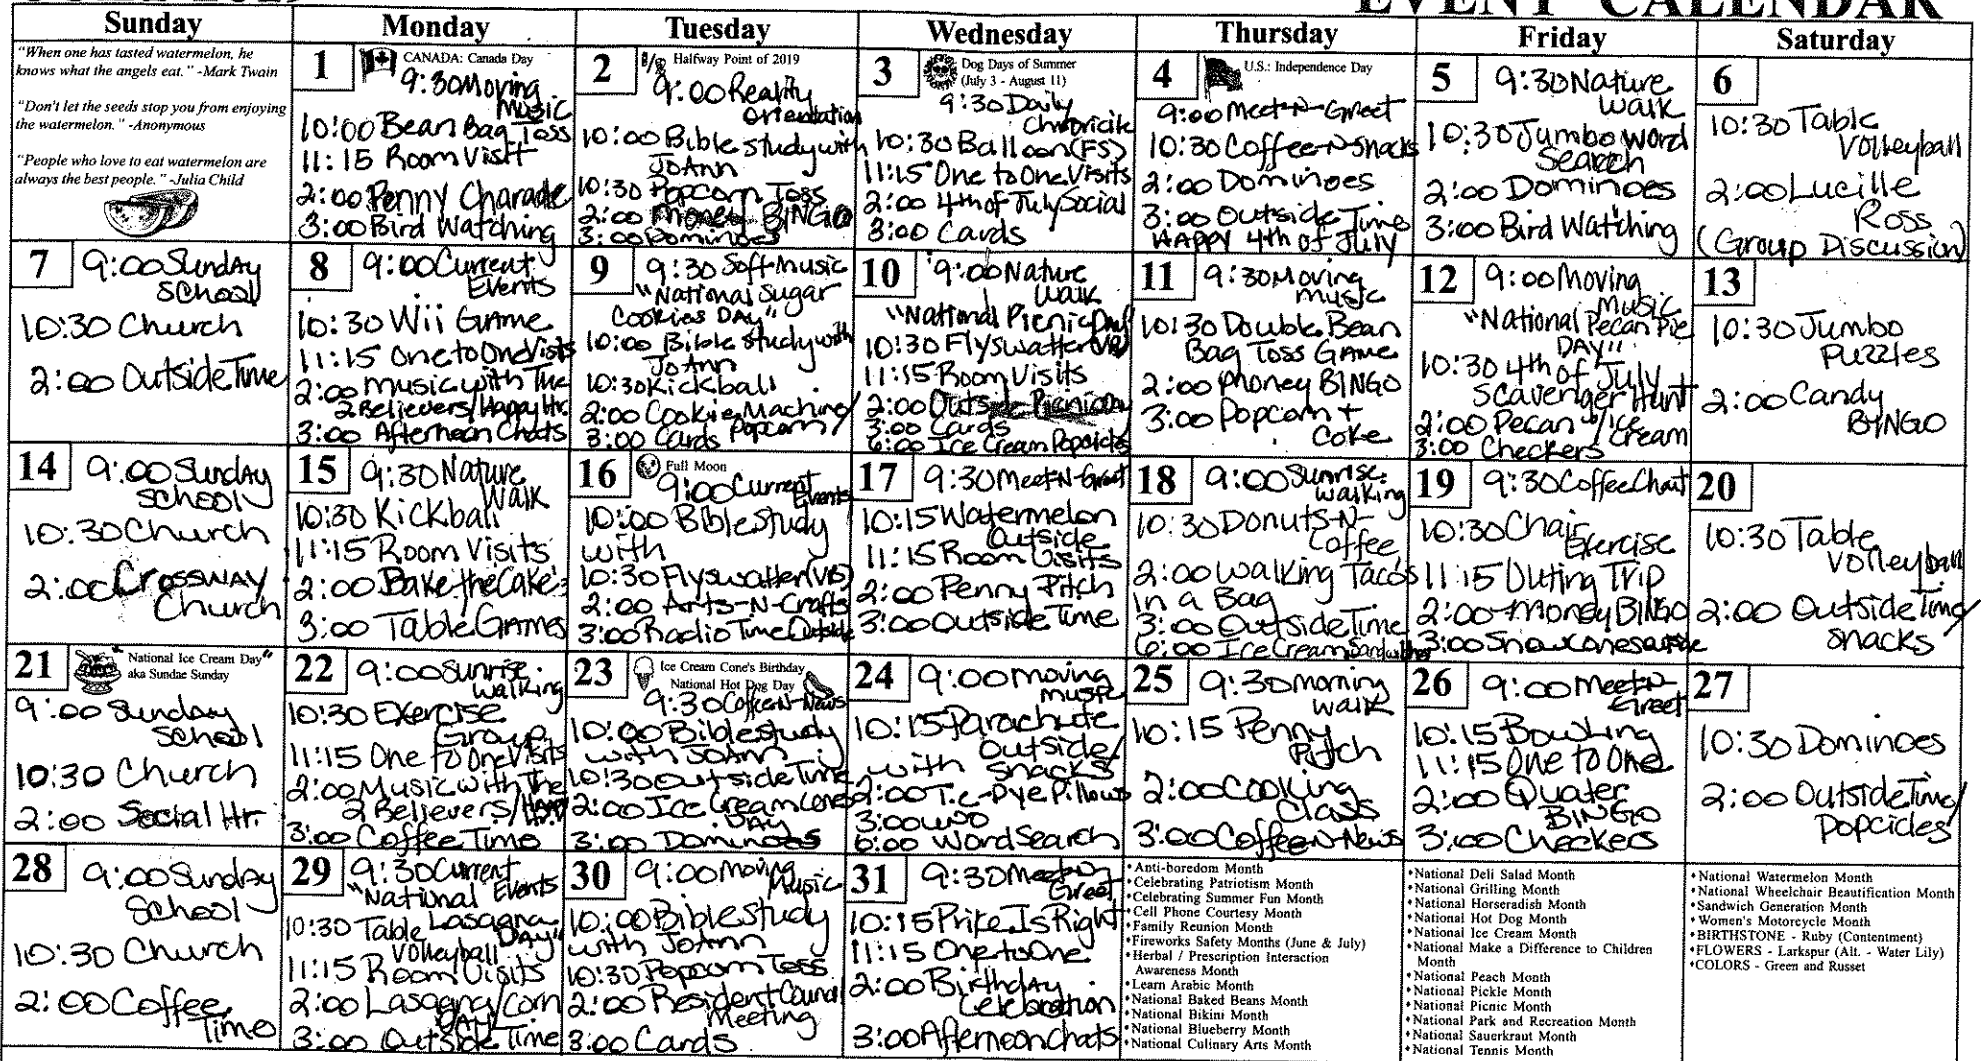 EVENT CALENDAR
Sunday
Monday
Tuesday
Wednesday
Thursday
Friday
Saturday
"When one has tasted watermelon, he
knows what the angels eat." -Mark Twain
"Don't let the seeds stop you from enjoying
the watermelon." -Anonymous
"People who love to eat watermelon are
always the best people." -Julia Child
1
CANADA: Canada Day
9:30 Moving
Music
10:00 Bean Bag Toss
11:15 Room Visit
2:00 Penny Charade
3:00 Bird Watching
2
Halfway Point of 2019
9:00 Reality
Orientation
10:00 Bible study with
JoAnn
10:30 Popcorn Toss
2:00 Money BINGO
3:00 Dominoes
3
Dog Days of Summer
(July 3 - August 11)
9:30 Daily
Chronicle
10:30 Balloon (FS)
11:15 One to One Visits
2:00 4th of July Social
3:00 Cards
4
U.S.: Independence Day
9:00 Meet-N-Greet
10:30 Coffee-N-Snacks
2:00 Dominoes
3:00 Outside Time
HAPPY 4th of July
5
9:30 Nature
Walk
10:30 Jumbo Word
Search
2:00 Dominoes
3:00 Bird Watching
6
10:30 Table
Volleyball
2:00 Lucille
Ross
(Group Discussion)
7
9:00 Sunday
School
10:30 Church
2:00 Outside Time
8
9:00 Current
Events
10:30 Wii Game
11:15 One to One Visits
2:00 Music with The
2 Believers/Happy Hr.
3:00 Afternoon Chats
9
9:30 Soft Music
"National Sugar
Cookies DAY"
10:00 Bible study with
JoAnn
10:30 Kickball
2:00 Cookie Machine/
Popcorn/
3:00 Cards
10
9:00 Nature
Walk
"National Picnic Day"
10:30 Flyswatter (VB)
11:15 Room Visits
2:00 Outside Picnic Day
3:00 Cards
6:00 Ice Cream Popsicles
11
9:30 Moving
Music
10:30 Double Bean
Bag Toss Game
2:00 Money BINGO
3:00 Popcorn +
Coke
12
9:00 Moving
Music
"National Pecan Pie
DAY"
10:30 4th of July
Scavenger Hunt
2:00 Pecan w/Ice
Cream
3:00 Checkers
13
10:30 Jumbo
Puzzles
2:00 Candy
BINGO
14
9:00 Sunday
School
10:30 Church
2:00 Crossway
Church
15
9:30 Nature
Walk
10:30 Kickball
11:15 Room Visits
2:00 Bake the Cake's
3:00 Table Games
16
Full Moon
9:00 Current
Events
10:00 Bible study
with
10:30 Flyswatter (VB)
2:00 Arts-N-Crafts
3:00 Radio Time Outside
17
9:30 Meet-N-Greet
10:15 Watermelon
Outside
11:15 Room Visits
2:00 Penny Pitch
3:00 Outside Time
18
9:00 Sunrise
Walking
10:30 Donuts-N-
Coffee
2:00 Walking Taco's
in a Bag
3:00 Outside Time
6:00 Ice Cream Sandwiches
19
9:30 Coffee Chat
10:30 Chair
Exercise
11:15 Outing Trip
2:00 Money BINGO
3:00 Snow Cones
20
10:30 Table
Volleyball
2:00 Outside Time/
Snacks
21
"National Ice Cream Day"
aka Sundae Sunday
9:00 Sunday
School
10:30 Church
2:00 Social Hr.
22
9:00 Sunrise
Walking
10:30 Exercise
Group
11:15 One to One Visits
2:00 Music with The
2 Believers/
3:00 Coffee Time
23
Ice Cream Cone's Birthday
National Hot Dog Day
9:30 Coffee-N-News
10:00 Bible study
with JoAnn
10:30 Outside Time
2:00 Ice Cream Cones
DAY
3:00 Dominoes
24
9:00 Moving
Music
10:15 Parachute
Outside/
with Snacks
2:00 Tie-Dye Pillows
3:00 UNO
6:00 Word Search
25
9:30 Morning
Walk
10:15 Penny
Pitch
2:00 Cooking
Class
3:00 Coffee-N-News
26
9:00 Meet-N-
Greet
10:15 Bowling
11:15 One to One
2:00 Quater
BINGO
3:00 Checkers
27
10:30 Dominoes
2:00 Outside Time/
Popcicles
28
9:00 Sunday
School
10:30 Church
2:00 Coffee
Time
29
9:30 Current
Events
"National
Lasagna
DAY"
10:30 Table
Volleyball
11:15 Room Visits
2:00 Lasagna/Corn
DAY
3:00 Outside Time
30
9:00 Moving
Music
10:00 Bible Study
with JoAnn
10:30 Popcorn Toss
2:00 Resident Council
Meeting
3:00 Cards
31
9:30 Meet-N-
Greet
10:15 Price Is Right
11:15 One to One
2:00 Birthday
Celebration
3:00 Afternoon Chats
•Anti-boredom Month
•Celebrating Patriotism Month
•Celebrating Summer Fun Month
•Cell Phone Courtesy Month
•Family Reunion Month
•Fireworks Safety Months (June & July)
•Herbal / Prescription Interaction
Awareness Month
•Learn Arabic Month
•National Baked Beans Month
•National Bikini Month
•National Blueberry Month
•National Culinary Arts Month
•National Deli Salad Month
•National Grilling Month
•National Horseradish Month
•National Hot Dog Month
•National Ice Cream Month
•National Make a Difference to Children
Month
•National Peach Month
•National Pickle Month
•National Picnic Month
•National Park and Recreation Month
•National Sauerkraut Month
•National Tennis Month
•National Watermelon Month
•National Wheelchair Beautification Month
•Sandwich Generation Month
•Women's Motorcycle Month
•BIRTHSTONE - Ruby (Contentment)
•FLOWERS - Larkspur (Alt. - Water Lily)
•COLORS - Green and Russet